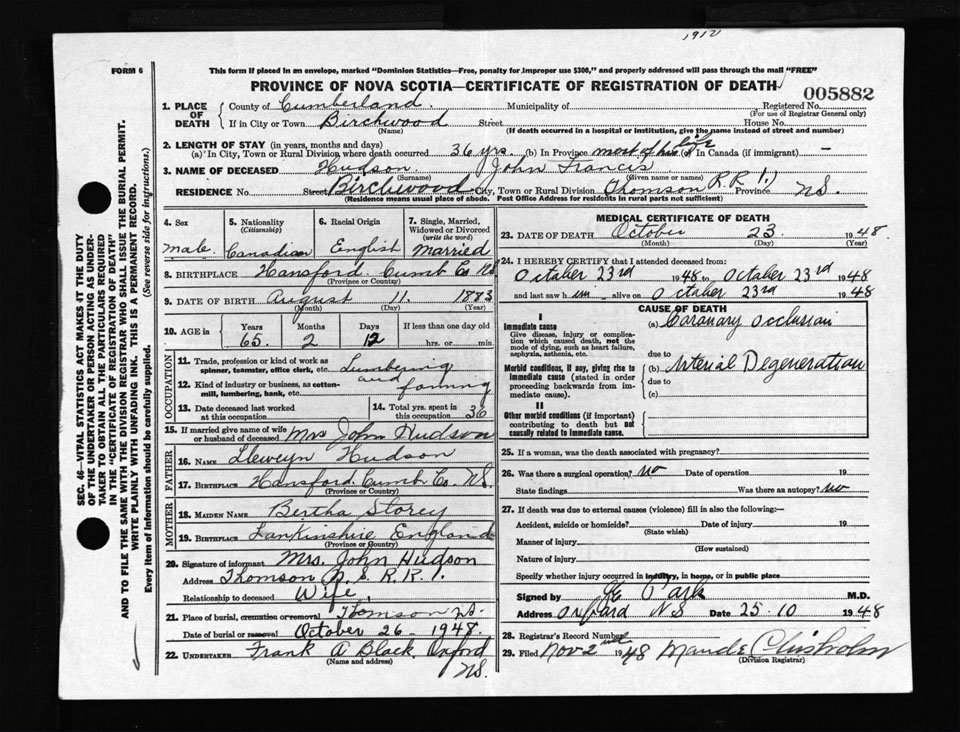 1912
FORM 6
This form if placed in an envelope, marked "Dominion Statistics—Free, penalty for improper use $300," and properly addressed will pass through the mail "FREE"
PROVINCE OF NOVA SCOTIA—CERTIFICATE OF REGISTRATION OF DEATH
005882
1. PLACE OF DEATH
County of Cumberland Municipality of Registered No.
(For use of Registrar General only)
If in City or Town Birchwood Street House No.
(Name) (If death occurred in a hospital or institution, give the name instead of street and number)
2. LENGTH OF STAY (in years, months and days)
(a) In City, Town or Rural Division where death occurred 36 yrs. (b) In Province most of his life (c) In Canada (if immigrant) —
3. NAME OF DECEASED Hudson John Francis
(Surname) (Given name or names)
RESIDENCE No. Street Birchwood City, Town or Rural Division Thomson R.R 1. Province N.S.
(Residence means usual place of abode. Post Office Address for residents in rural parts not sufficient)
4. Sex
male
5. Nationality
(Citizenship)
Canadian
6. Racial Origin
English
7. Single, Married, Widowed or Divorced
(write the word)
Married
8. BIRTHPLACE Hansford. Cumb Co NS
(Province or Country)
9. DATE OF BIRTH August 11. 1883
(Month) (Day) (Year)
10. AGE in
Years Months Days If less than one day old
65. 2 12 hrs. or min.
OCCUPATION
11. Trade, profession or kind of work as spinner, teamster, office clerk, etc. Lumbering
and
12. Kind of industry or business, as cotton-mill, lumbering, bank, etc. farming
13. Date deceased last worked at this occupation
14. Total yrs. spent in this occupation 36
15. If married give name of wife or husband of deceased Mrs John Hudson
FATHER
16. NAME Lleweyn Hudson
17. BIRTHPLACE Hansford. Cumb Co. N.S.
(Province or Country)
MOTHER
18. MAIDEN NAME Bertha Storey
19. BIRTHPLACE Lankinshire England
(Province or Country)
20. Signature of informant Mrs. John Hudson
Address Thomson N.S. R.R.1.
Relationship to deceased Wife.
21. Place of burial, cremation or removal Thomson NS.
Date of burial or removal October 26 - 1948.
22. UNDERTAKER Frank A Black. Oxford
(Name and address) NS.
MEDICAL CERTIFICATE OF DEATH
23. DATE OF DEATH October 23. 1948.
(Month) (Day) (Year)
24. I HEREBY CERTIFY that I attended deceased from:
October 23rd 1948 to October 23rd 1948
and last saw him alive on October 23rd 1948
CAUSE OF DEATH
I
Immediate cause
Give disease, injury or complication which caused death, not the mode of dying, such as heart failure, asphyxia, asthenia, etc.
(a) Coronary Occlusion
due to
Morbid conditions, if any, giving rise to immediate cause (stated in order proceeding backwards from immediate cause).
(b) Arterial Degeneration
due to
(c)
II
Other morbid conditions (if important) contributing to death but not causally related to immediate cause.
25. If a woman, was the death associated with pregnancy?
26. Was there a surgical operation? no Date of operation 19
State findings Was there an autopsy? no
27. If death was due to external causes (violence) fill in also the following:—
Accident, suicide or homicide? Date of injury 19
(State which)
Manner of injury
(How sustained)
Nature of injury
Specify whether injury occurred in industry, in home, or in public place
Signed by Park M.D.
Address Oxford N S Date 25 10 1948
28. Registrar's Record Number
29. Filed Nov 2nd 1948 Maude Chisholm
(Division Registrar)
SEC. 46—VITAL STATISTICS ACT MAKES IT THE DUTY
OF THE UNDERTAKER OR PERSON ACTING AS UNDER-
TAKER TO OBTAIN ALL THE PARTICULARS REQUIRED
IN THE "CERTIFICATE OF REGISTRATION OF DEATH"
AND TO FILE THE SAME WITH THE DIVISION REGISTRAR WHO SHALL ISSUE THE BURIAL PERMIT.
WRITE PLAINLY WITH UNFADING INK. THIS IS A PERMANENT RECORD.
Every item of information should be carefully supplied. (See reverse side for instructions.)